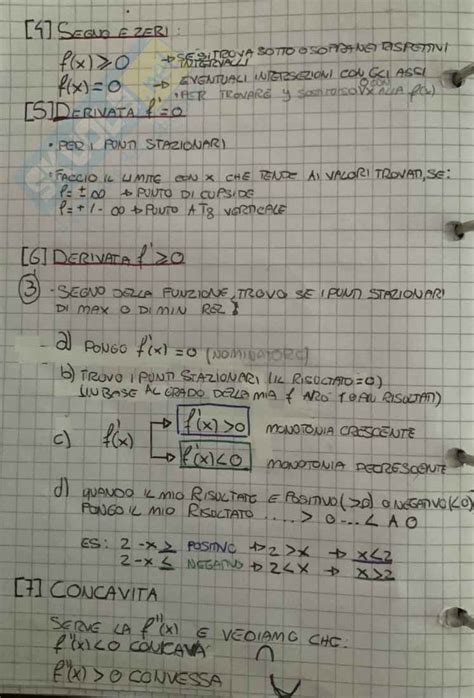 [4] SEGNO E ZERI:
f(x) ≥ 0 → SE SI TROVA SOTTO O SOPRA NEI RISPETTIVI INTERVALLI
f(x) = 0 → EVENTUALI INTERSEZIONI CON GLI ASSI
• PER TROVARE y SOSTITUISCO X ALLA f(x)
[5] DERIVATA f' = 0
• PER I PUNTI STAZIONARI
• FACCIO IL LIMITE CON X CHE TENDE AI VALORI TROVATI, SE:
l = ± ∞ → PUNTO DI CUPSIDE
l = + / - ∞ → PUNTO A Tg VERTICALE
[6] DERIVATA f' ≥ 0
③ • SEGNO DELLA FUNZIONE, TROVO SE I PUNTI STAZIONARI
DI MAX O DI MIN REL
a) PONGO f'(x) = 0 (NOMINATORE)
b) TROVO I PUNTI STAZIONARI (IL RISULTATO = 0)
(IN BASE AL GRADO DELLA MIA f AVRÒ 1 O PIÙ RISULTATI)
c) f'(x) → f'(x) > 0 MONOTONIA CRESCENTE
→ f'(x) < 0 MONOTONIA DECRESCENTE
d) QUANDO IL MIO RISULTATO È POSITIVO (>0) O NEGATIVO (<0)
PONGO IL MIO RISULTATO .... > 0 ... < A 0
ES: 2 - x ≥ POSITIVO → 2 > x → x < 2
2 - x ≤ NEGATIVO → 2 < x → x > 2
[7] CONCAVITA
SERVE LA f''(x) E VEDIAMO CHE:
f''(x) < 0 CONCAVA ∩
f''(x) > 0 CONVESSA ∪